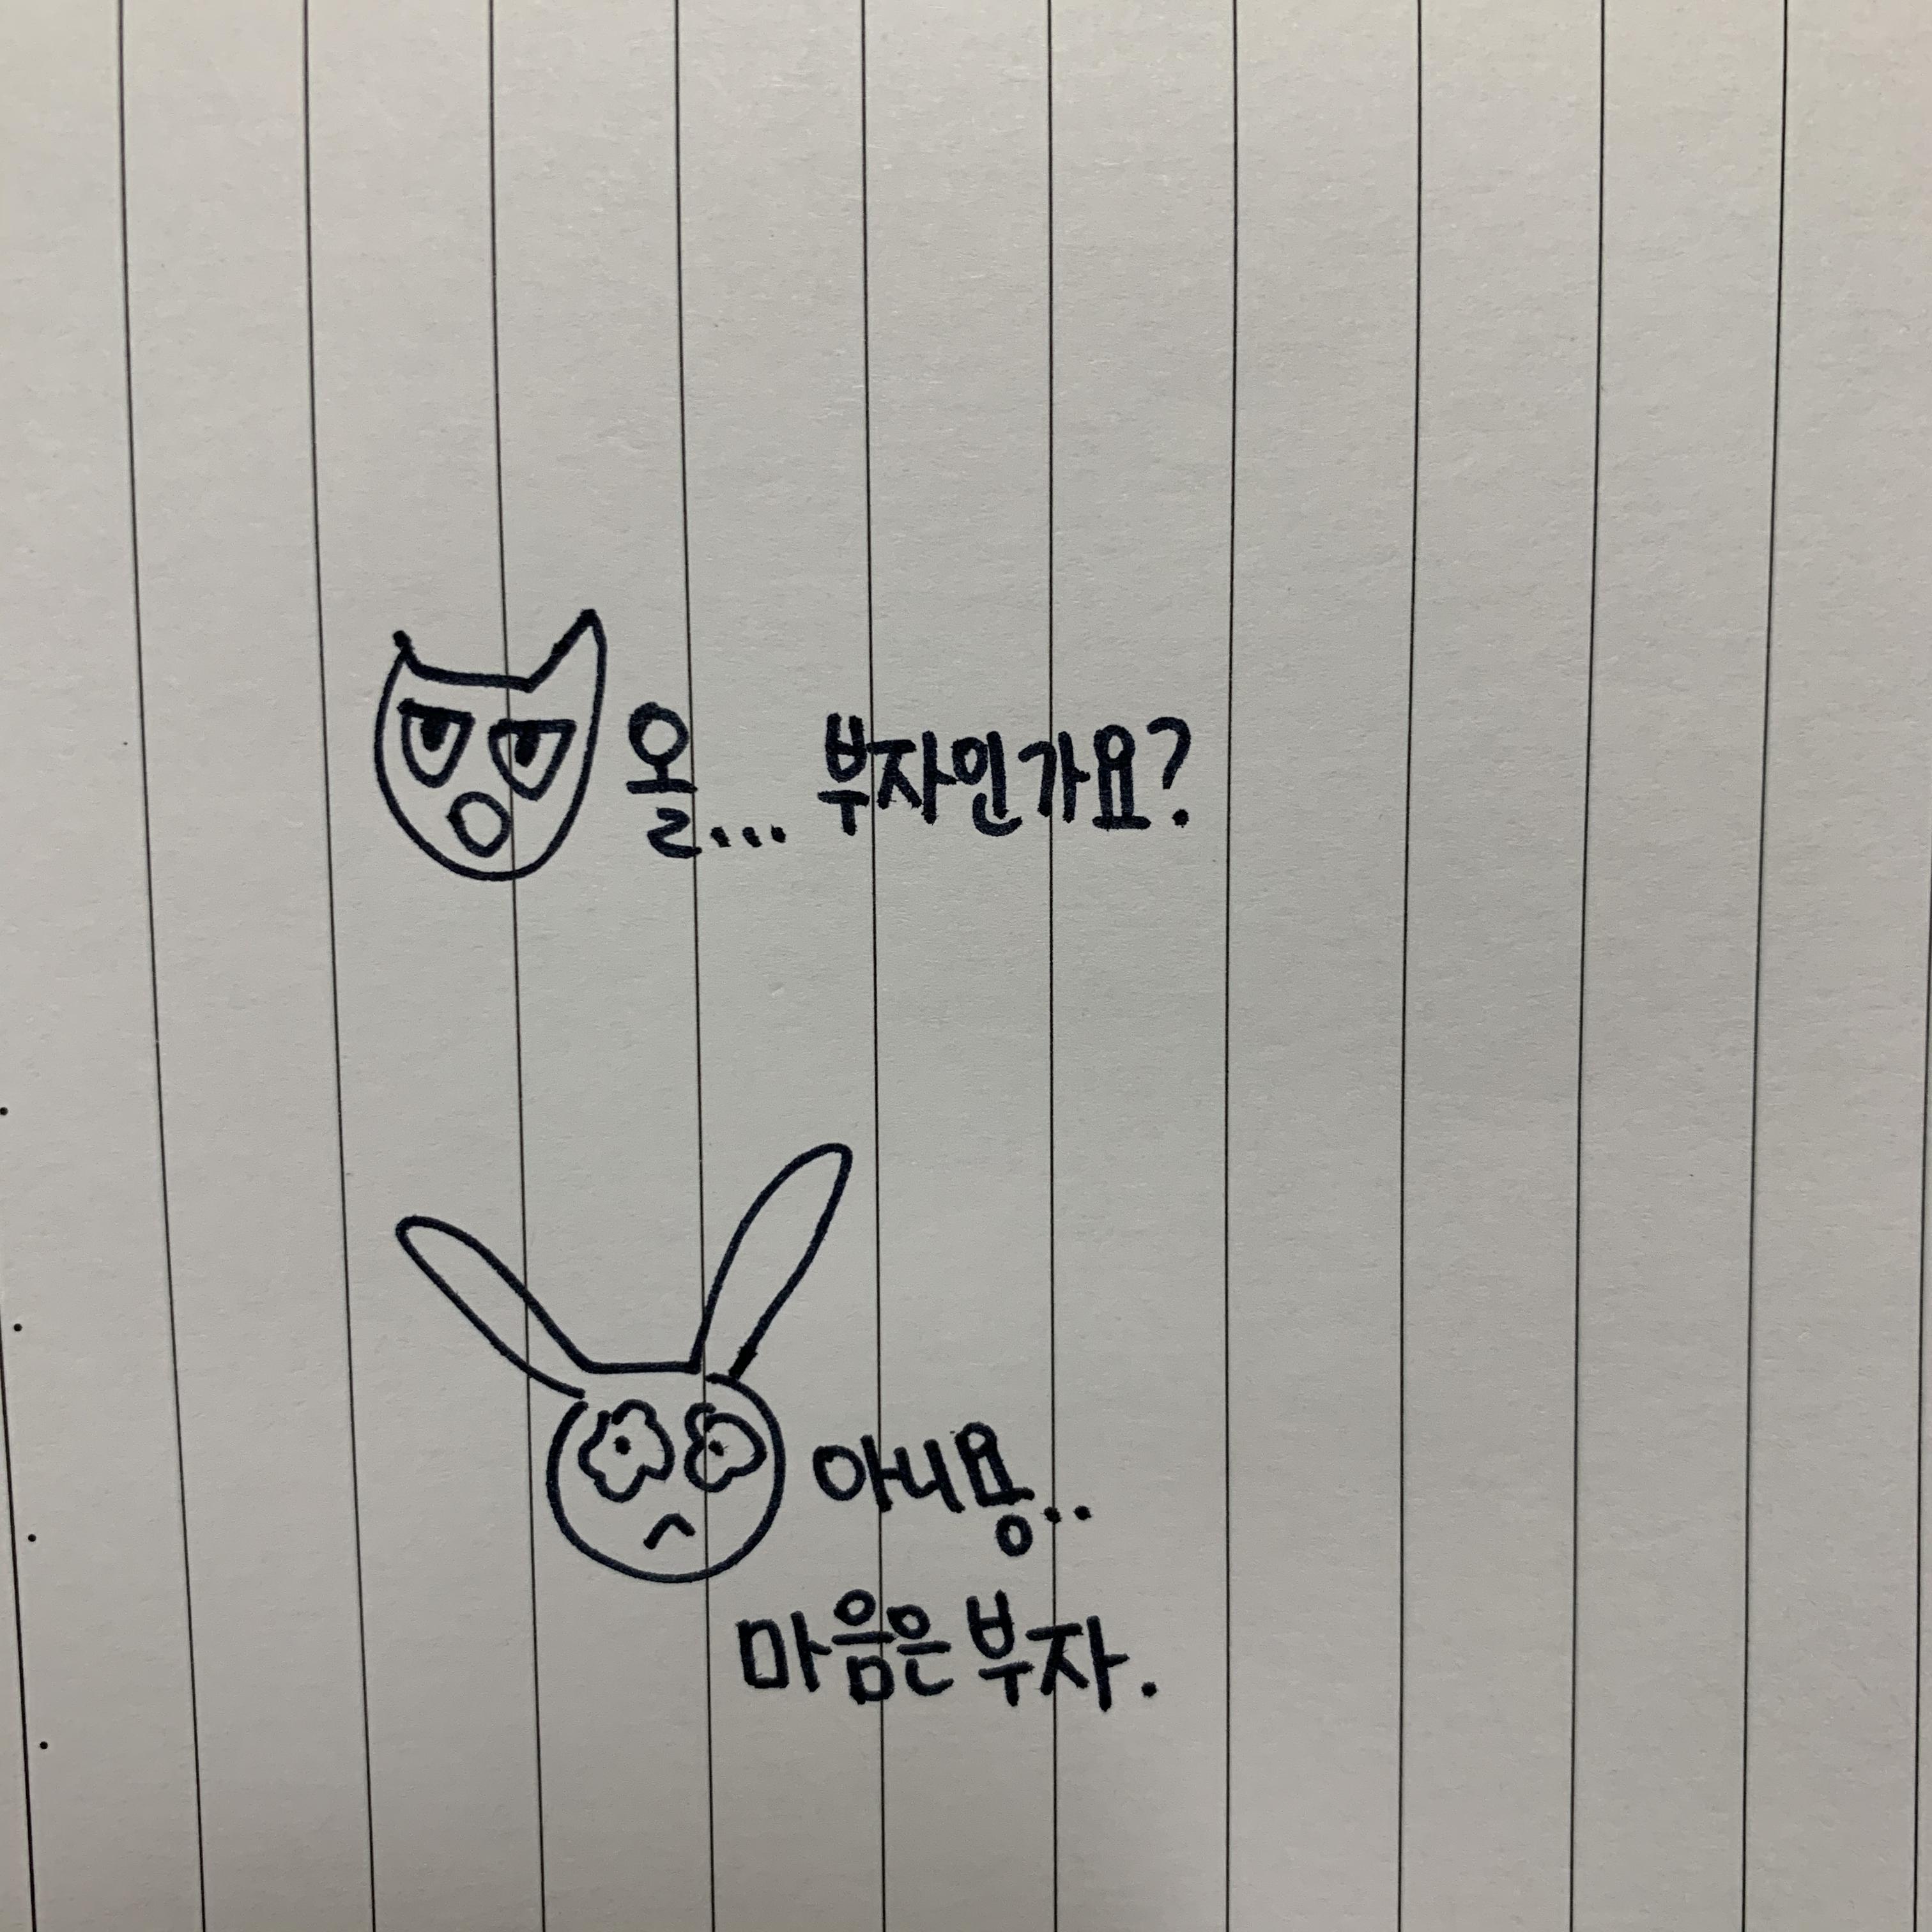 올... 부자인가요?
아니용..
마음은 부자.